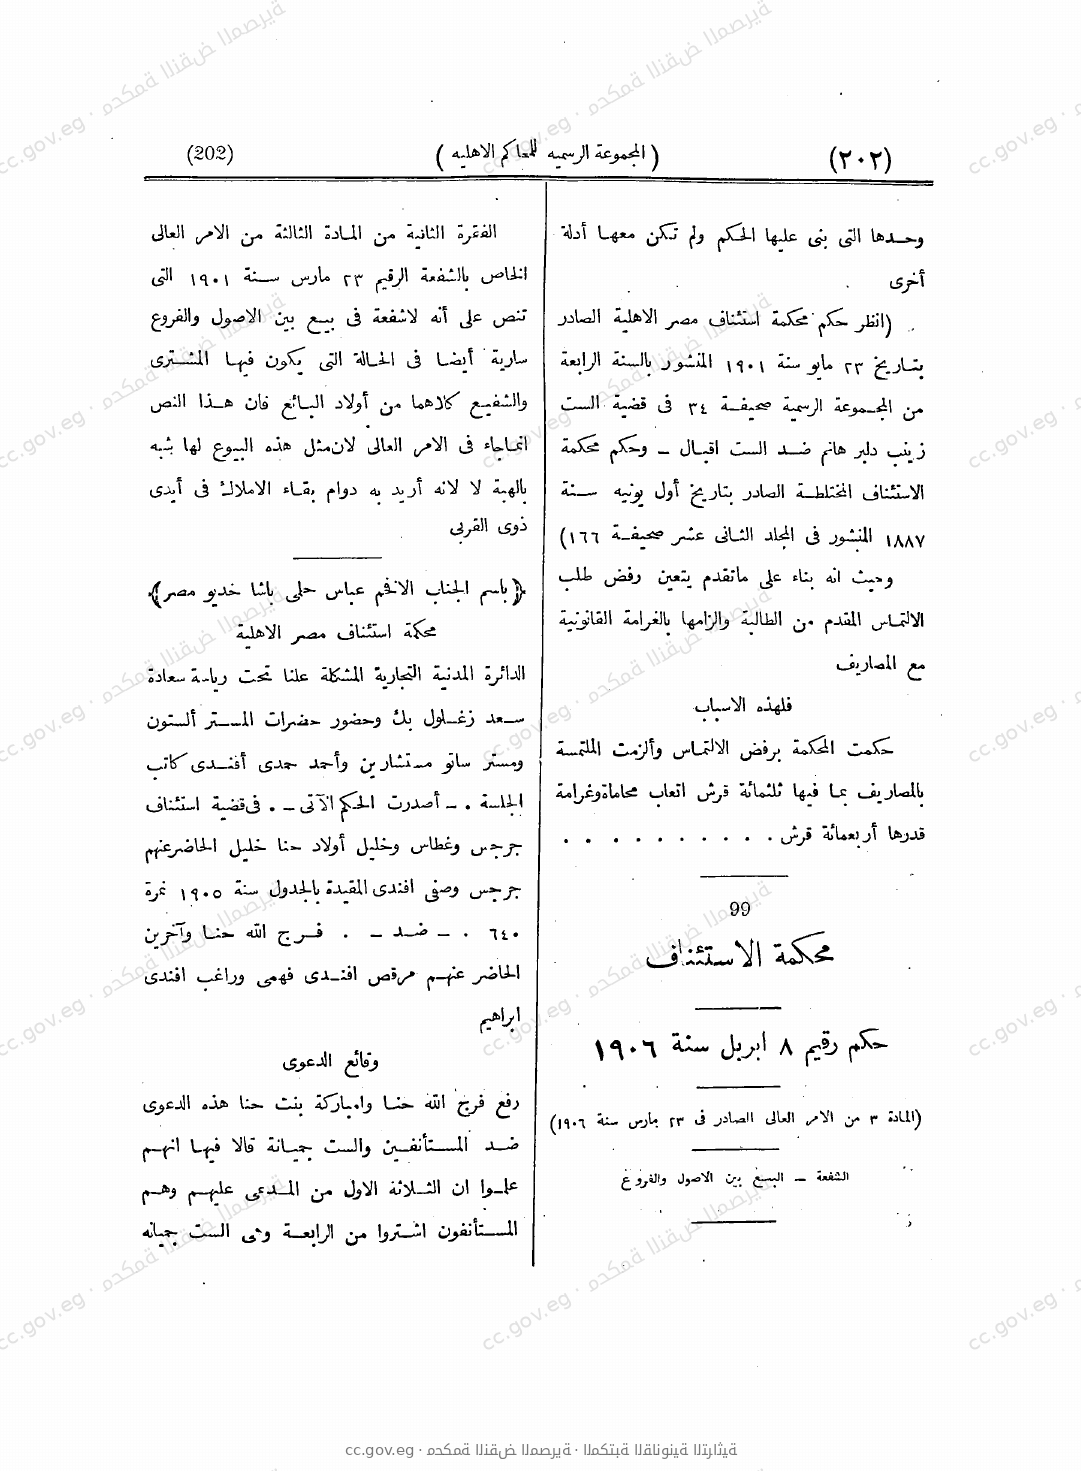 (٢٠٢) (المجموعة الرسميه للمحاكم الاهليه) (202)
وحدها التى بنى عليها الحكم ولم تكن معها أدلة
أخرى
(انظر حكم محكمة استئناف مصر الاهلية الصادر
بتاريخ ٢٣ مايو سنة ١٩٠١ المنشور بالسنة الرابعة
من المجموعة الرسمية صحيفة ٣٤ فى قضية الست
زينب دلبر هانم ضد الست اقبال – وحكم محكمة
الاستئناف المختلطة الصادر بتاريخ أول يونيه سنة
١٨٨٧ المنشور فى المجلد الثانى عشر صحيفة ١٦٦)
وحيث انه بناء على ماتقدم يتعين رفض طلب
الالتماس المقدم من الطالبة والزامها بالغرامة القانونية
مع المصاريف
فلهذه الاسباب
حكمت المحكمة برفض الالتماس وألزمت الملتمسة
بالمصاريف بما فيها ثلثمائة قرش اتعاب محاماة وغرامة
قدرها أربعمائة قرش . . . . . . . . . .
99
محكمة الاستئناف
حكم رقيم ٨ ابريل سنة ١٩٠٦
(المادة ٣ من الامر العالى الصادر فى ٢٣ مارس سنة ١٩٠٦)
الشفعة – البيع بين الاصول والفروع
الفقرة الثانية من المادة الثالثة من الامر العالى
الخاص بالشفعة الرقيم ٢٣ مارس سنة ١٩٠١ التى
تنص على أنه لاشفعة فى بيع بين الاصول والفروع
سارية أيضا فى الحالة التى يكون فيها المشترى
والشفيع كلاهما من أولاد البائع فان هذا النص
انماجاء فى الامر العالى لان مثل هذه البيوع لها شبه
بالهبة لا لانه أريد به دوام بقاء الاملاك فى أيدى
ذوى القربى
﴿باسم الجناب الافخم عباس حلمى باشا خديو مصر﴾
محكمة استئناف مصر الاهلية
الدائرة المدنية التجارية المشكلة علنا تحت رياسة سعادة
سعد زغلول بك وحضور حضرات المستر ألستون
ومستر ساتو مستشارين وأحمد حمدى أفندى كاتب
الجلسة . – أصدرت الحكم الآتى – . فى قضية استئناف
جرجس وغطاس وخليل أولاد حنا خليل الحاضر عنهم
جرجس وصفى افندى المقيدة بالجدول سنة ١٩٠٥ نمرة
٦٤٠ . – ضد – . فرج الله حنا وآخرين
الحاضر عنهم مرقص افندى فهمى وراغب افندى
ابراهيم
وقائع الدعوى
رفع فرج الله حنا وامباركة بنت حنا هذه الدعوى
ضد المستأنفين والست جميانة قالا فيها انهم
علموا ان الثلاثة الاول من المدعى عليهم وهم
المستأنفون اشتروا من الرابعة وهى الست جميانه
cc.gov.eg · محكمة النقض المصرية · المكتبة القانونية التراثية